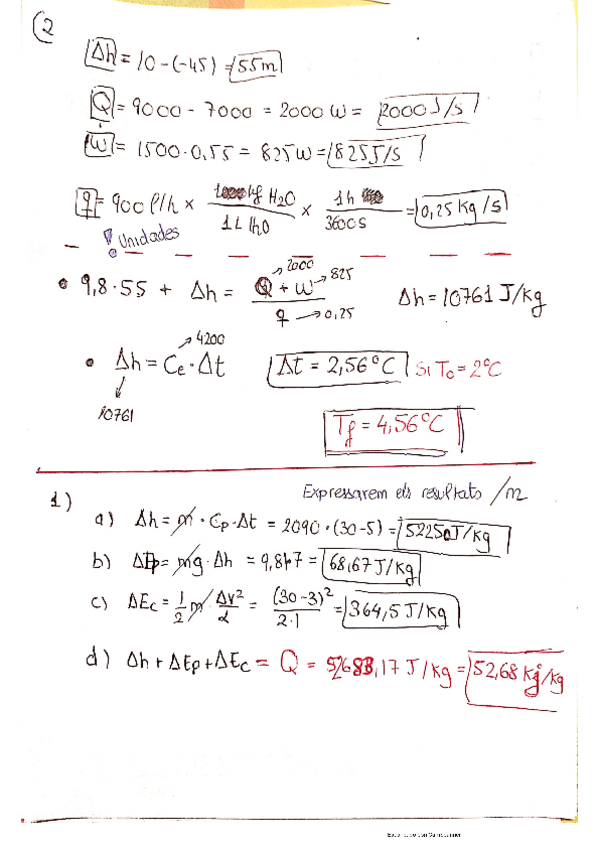 (2
Δh = 10 - (-45) = 55m
Q = 9000 - 7000 = 2000 W = 2000 J/s
W = 1500 · 0,55 = 825 W = 825 J/s
q = 900 l/h × kg H2O / 1 L H2O × 1h / 3600 s = 0,25 kg/s
! Unidades
• 9,8·55 + Δh = Q + W / q → 2000 → 825 → 0,25 Δh = 10761 J/kg
• Δh = Ce · Δt → 4200 Δt = 2,56ºC Si To = 2ºC
10761
Tf = 4,56ºC
1) Expressarem els resultats /m
a) Δh = m · Cp · Δt = 2090 · (30-5) = 52250 J/kg
b) ΔEp = mg · Δh = 9,81·7 = 68,67 J/kg
c) ΔEc = 1/2 m · Δv²/2 = (30-3)² / 2·1 = 364,5 J/kg
d) Δh + ΔEp + ΔEc = Q = 52683,17 J/kg = 52,68 kJ/kg